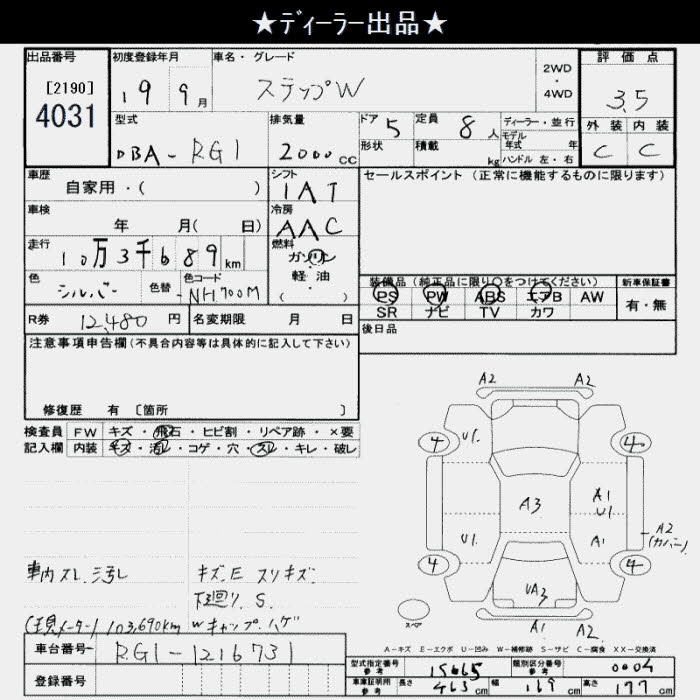 ★ディーラー出品★
出品番号 初度登録年月 車名・グレード 2WD・4WD 評価点
[2190]
4031
19 9月 ステップW 3.5
型式 排気量 ドア 定員 ディーラー・並行 外装 内装
DBA-RG1 2000cc 5 8人 モデル年式 年 C C
形状 積載 kg ハンドル 左・右
車歴 シフト セールスポイント(正常に機能するものに限ります)
自家用・( ) IAT
車検 冷房
年 月( 日) AAC
走行 燃料
10万3千689km ガソリン・軽油 ( )
色 色替 色コード 装備品(純正品に限り○をつけてください) 新車保証書
シルバー NH700M PS PW ABS エアB AW 有・無
SR ナビ TV カワ
R券 12,480円 名変期限 月 日 後日品
注意事項申告欄(不具合内容等は具体的に記入して下さい)
修復歴 有 [箇所 ]
検査員記入欄 FW キズ・飛石・ヒビ割・リペア跡・×要
内装 キズ・汚れ・コゲ・穴・スレ・キレ・破レ
A2 A2
4 U1. 4
A3 A1 U1
U1. A1 A2(カバー)
4 4
UA3
スペア A1 A2
車内スレ.汚れ キズ.E スリキズ.
下廻り.S.
(現メーター) 103,690km Wキャップハゲ
A-キズ E-エクボ U-凹み W-補修跡 S-サビ C-腐食 XX-交換済
車台番号 RG1-1216731
登録番号
型式指定番号 参考 15665 類別区分番号 参考 0004
車庫証明用 参考 長さ 463cm 幅 169cm 高さ 177cm